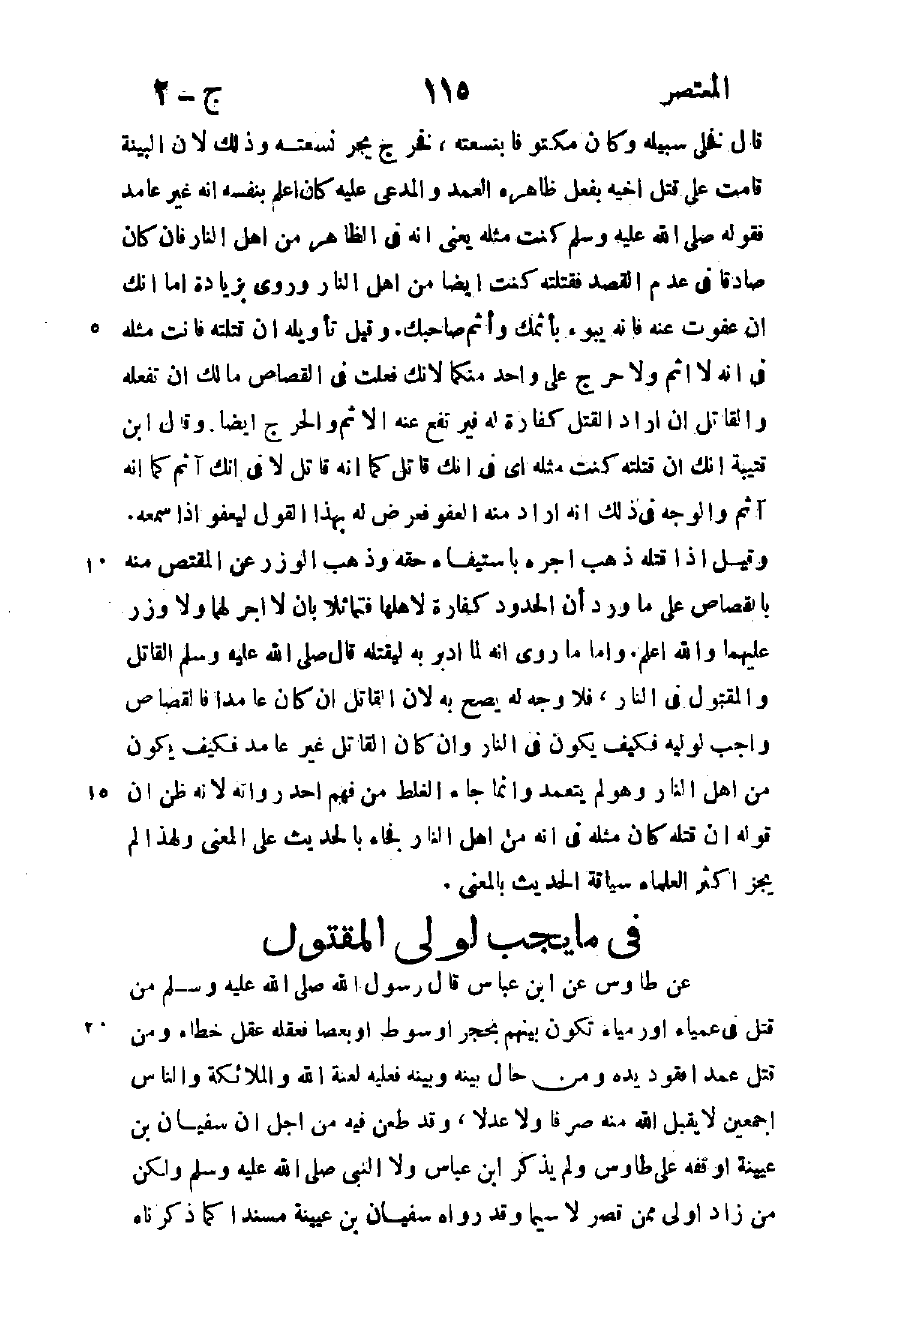 المعتصر ١١٥ ج – ٢
قال فخلى سبيله وكان مكتوفا بنسعته ، فخرج يجر نسعته وذلك لان البينة
قامت على قتل اخيه بفعل ظاهره العمد والمدعى عليه كان اعلم بنفسه انه غير عامد
فقوله صلى الله عليه وسلم كنت مثله يعنى انه فى الظاهر من اهل النار فان كان
صادقا فى عدم القصد فقتلته كنت ايضا من اهل النار وروى بزيادة اما انك
ان عفوت عنه فانه يبوء بأثمك وأثم صاحبك. وقيل تأويله ان قتلته فانت مثله ٥
فى انه لا اثم ولا حرج على واحد منكما لانك فعلت فى القصاص مالك ان تفعله
والقاتل ان اراد القتل كفارة له فيرتفع عنه الاثم والحرج ايضا. وقال ابن
قتيبة انك ان قتلته كنت مثله اى فى انك قاتل كما انه قاتل لا فى انك آثم كما انه
آثم والوجه فى ذلك انه اراد منه العفو فعرض له بهذا القول ليعفو اذا سمعه.
وقيل اذا قتله ذهب اجره باستيفاء حقه وذهب الوزر عن المقتص منه ١٠
بالقصاص على ما ورد أن الحدود كفارة لاهلها فتماثلا بان لا اجر لها ولا وزر
عليهما والله اعلم. واما ما روى انه لما ادبر به ليقتله قال صلى الله عليه وسلم القاتل
والمقتول فى النار ، فلا وجه له يصح به لان القاتل ان كان عامدا فالقصاص
واجب لوليه فكيف يكون فى النار وان كان القاتل غير عامد فكيف يكون
من اهل النار وهو لم يتعمد وانما جاء الغلط من فهم احد رواته لانه ظن ان ١٥
قوله ان قتله كان مثله فى انه من اهل النار فجاء بالحديث على المعنى ولهذا لم
يجز اكثر العلماء سياقة الحديث بالمعنى .
فى ما يجب لولى المقتول
عن طاوس عن ابن عباس قال رسول الله صلى الله عليه وسلم من
قتل فى عمياء اورمياء تكون بينهم بحجر اوسوط اوبعصا فعقله عقل خطاء ومن ٢٠
قتل عمدا فقود يده ومن حال بينه وبينه فعليه لعنة الله والملائكة والناس
اجمعين لا يقبل الله منه صرفا ولا عدلا ، وقد طعن فيه من اجل ان سفيان بن
عيينة اوقفه على طاوس ولم يذكر ابن عباس ولا النبى صلى الله عليه وسلم ولكن
من زاد اولى ممن قصر لا سيما وقد رواه سفيان بن عيينة مسندا كما ذكرناه